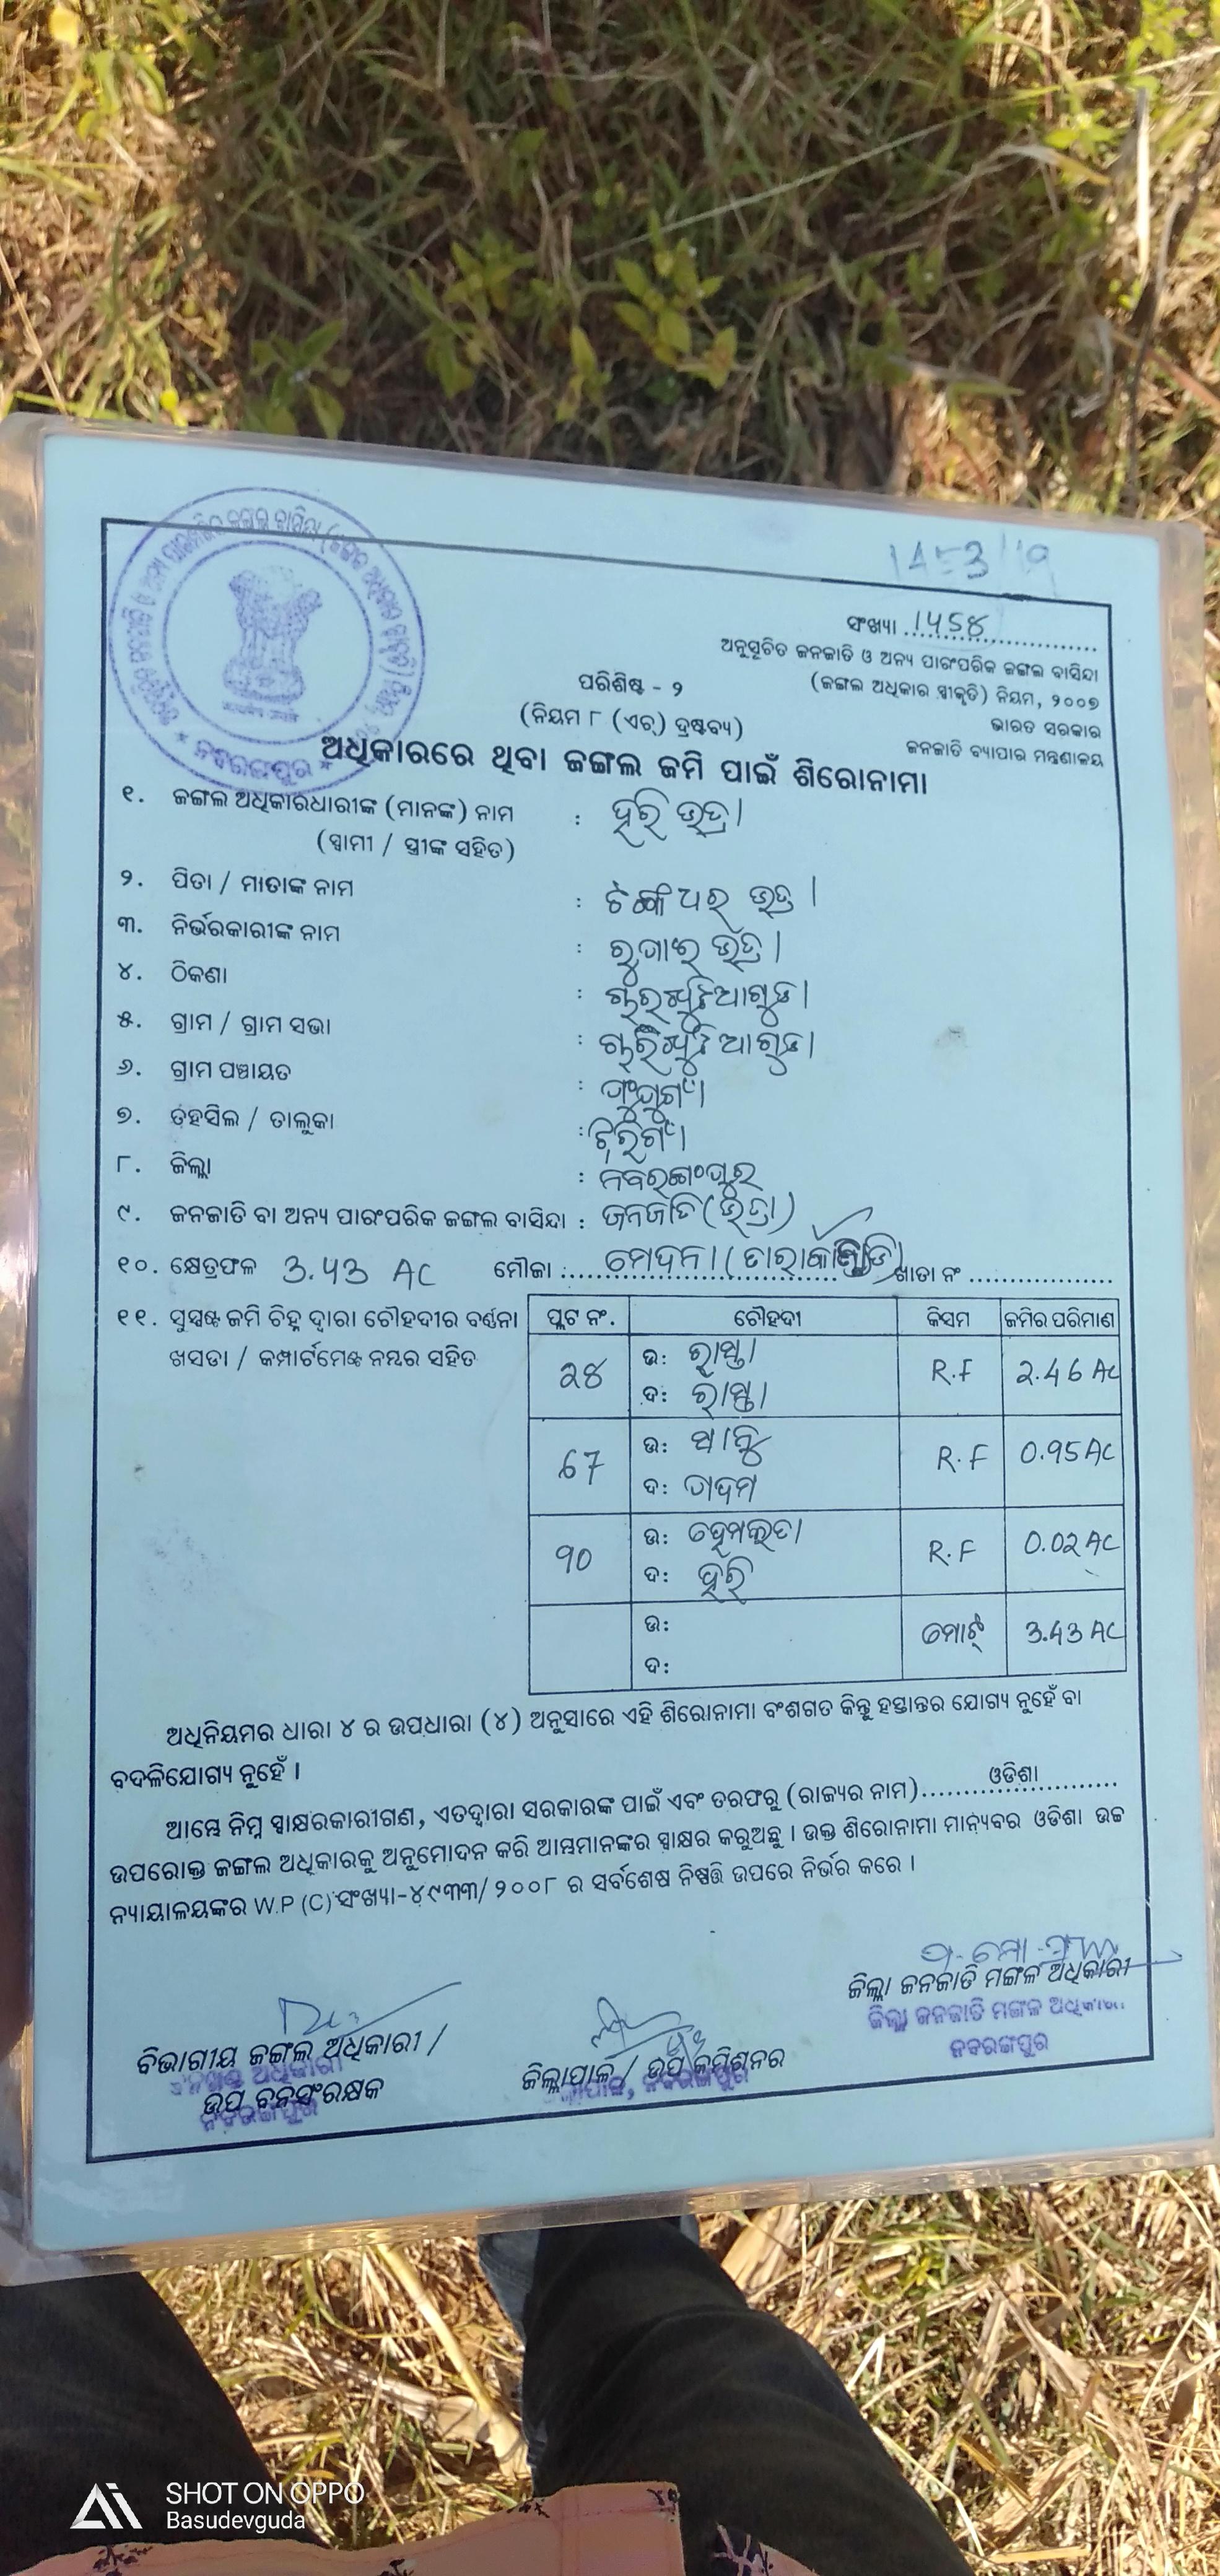 ସଂଖ୍ୟା ..1458..
ଅନୁସୂଚିତ ଜନଜାତି ଓ ଅନ୍ୟ ପାରଂପରିକ ଜଙ୍ଗଲ ବାସିନ୍ଦା
(ଜଙ୍ଗଲ ଅଧିକାର ସ୍ୱୀକୃତି) ନିୟମ, ୨୦୦୭
ଭାରତ ସରକାର
ଜନଜାତି ବ୍ୟାପାର ମନ୍ତ୍ରଣାଳୟ
ପରିଶିଷ୍ଟ - ୨
(ନିୟମ ୮ (ଏଚ୍) ଦ୍ରଷ୍ଟବ୍ୟ)
ନବରଙ୍ଗପୁର
ଅଧିକାରରେ ଥିବା ଜଙ୍ଗଲ ଜମି ପାଇଁ ଶିରୋନାମା
୧. ଜଙ୍ଗଲ ଅଧିକାରଧାରୀଙ୍କ (ମାନଙ୍କ) ନାମ : ହରି ଭତ୍ରା
(ସ୍ୱାମୀ / ସ୍ତ୍ରୀଙ୍କ ସହିତ)
୨. ପିତା / ମାତାଙ୍କ ନାମ : ଭତ୍ରା
୩. ନିର୍ଭରକାରୀଙ୍କ ନାମ : ଭତ୍ରା
୪. ଠିକଣା :
୫. ଗ୍ରାମ / ଗ୍ରାମ ସଭା :
୬. ଗ୍ରାମ ପଞ୍ଚାୟତ :
୭. ତହସିଲ / ତାଲୁକା :
୮. ଜିଲ୍ଲା : ନବରଙ୍ଗପୁର
୯. ଜନଜାତି ବା ଅନ୍ୟ ପାରଂପରିକ ଜଙ୍ଗଲ ବାସିନ୍ଦା : ଜନଜାତି (ଭତ୍ରା)
୧୦. କ୍ଷେତ୍ରଫଳ 3.43 AC ମୌଜା : ମେଦନା ଖାତା ନଂ
୧୧. ସୁସ୍ପଷ୍ଟ ଜମି ଚିହ୍ନ ଦ୍ୱାରା ଚୌହଦୀର ବର୍ଣ୍ଣନା
ଖସଡା / କମ୍ପାର୍ଟମେଣ୍ଟ ନମ୍ବର ସହିତ
ପ୍ଲଟ ନଂ. ଚୌହଦୀ କିସମ ଜମିର ପରିମାଣ
28 ଉ: ରାସ୍ତା R.F 2.46 AC
ଦ: ରାସ୍ତା
67 ଉ: R.F 0.95 AC
ଦ: ଗଦମ
90 ଉ: ହେମଲତା R.F 0.02 AC
ଦ: ହରି
ଉ: ମୋଟ୍ 3.43 AC
ଦ:
ଅଧିନିୟମର ଧାରା ୪ ର ଉପଧାରା (୪) ଅନୁସାରେ ଏହି ଶିରୋନାମା ବଂଶଗତ କିନ୍ତୁ ହସ୍ତାନ୍ତର ଯୋଗ୍ୟ ନୁହେଁ ବା
ବଦଳିଯୋଗ୍ୟ ନୁହେଁ ।
ଆମ୍ଭେ ନିମ୍ନ ସ୍ୱାକ୍ଷରକାରୀଗଣ, ଏତଦ୍ୱାରା ସରକାରଙ୍କ ପାଇଁ ଏବଂ ତରଫରୁ (ରାଜ୍ୟର ନାମ) ଓଡିଶା
ଉପରୋକ୍ତ ଜଙ୍ଗଲ ଅଧିକାରକୁ ଅନୁମୋଦନ କରି ଆମ୍ଭମାନଙ୍କର ସ୍ୱାକ୍ଷର କରୁଅଛୁ । ଉକ୍ତ ଶିରୋନାମା ମାନ୍ୟବର ଓଡିଶା ଉଚ୍ଚ
ନ୍ୟାୟାଳୟଙ୍କର W.P (C) ସଂଖ୍ୟା-୪୯୩୩/୨୦୦୮ ର ସର୍ବଶେଷ ନିଷ୍ପତ୍ତି ଉପରେ ନିର୍ଭର କରେ ।
ଜିଲ୍ଲା ଜନଜାତି ମଙ୍ଗଳ ଅଧିକାରୀ
ଜିଲ୍ଲା ଜନଜାତି ମଙ୍ଗଳ ଅଧିକାରୀ
ନବରଙ୍ଗପୁର
ବିଭାଗୀୟ ଜଙ୍ଗଲ ଅଧିକାରୀ /
ଉପ ବନସଂରକ୍ଷକ
ନବରଙ୍ଗପୁର
ଜିଲ୍ଲାପାଳ / ଉପ କମିଶନର
ନବରଙ୍ଗପୁର
SHOT ON OPPO
Basudevguda